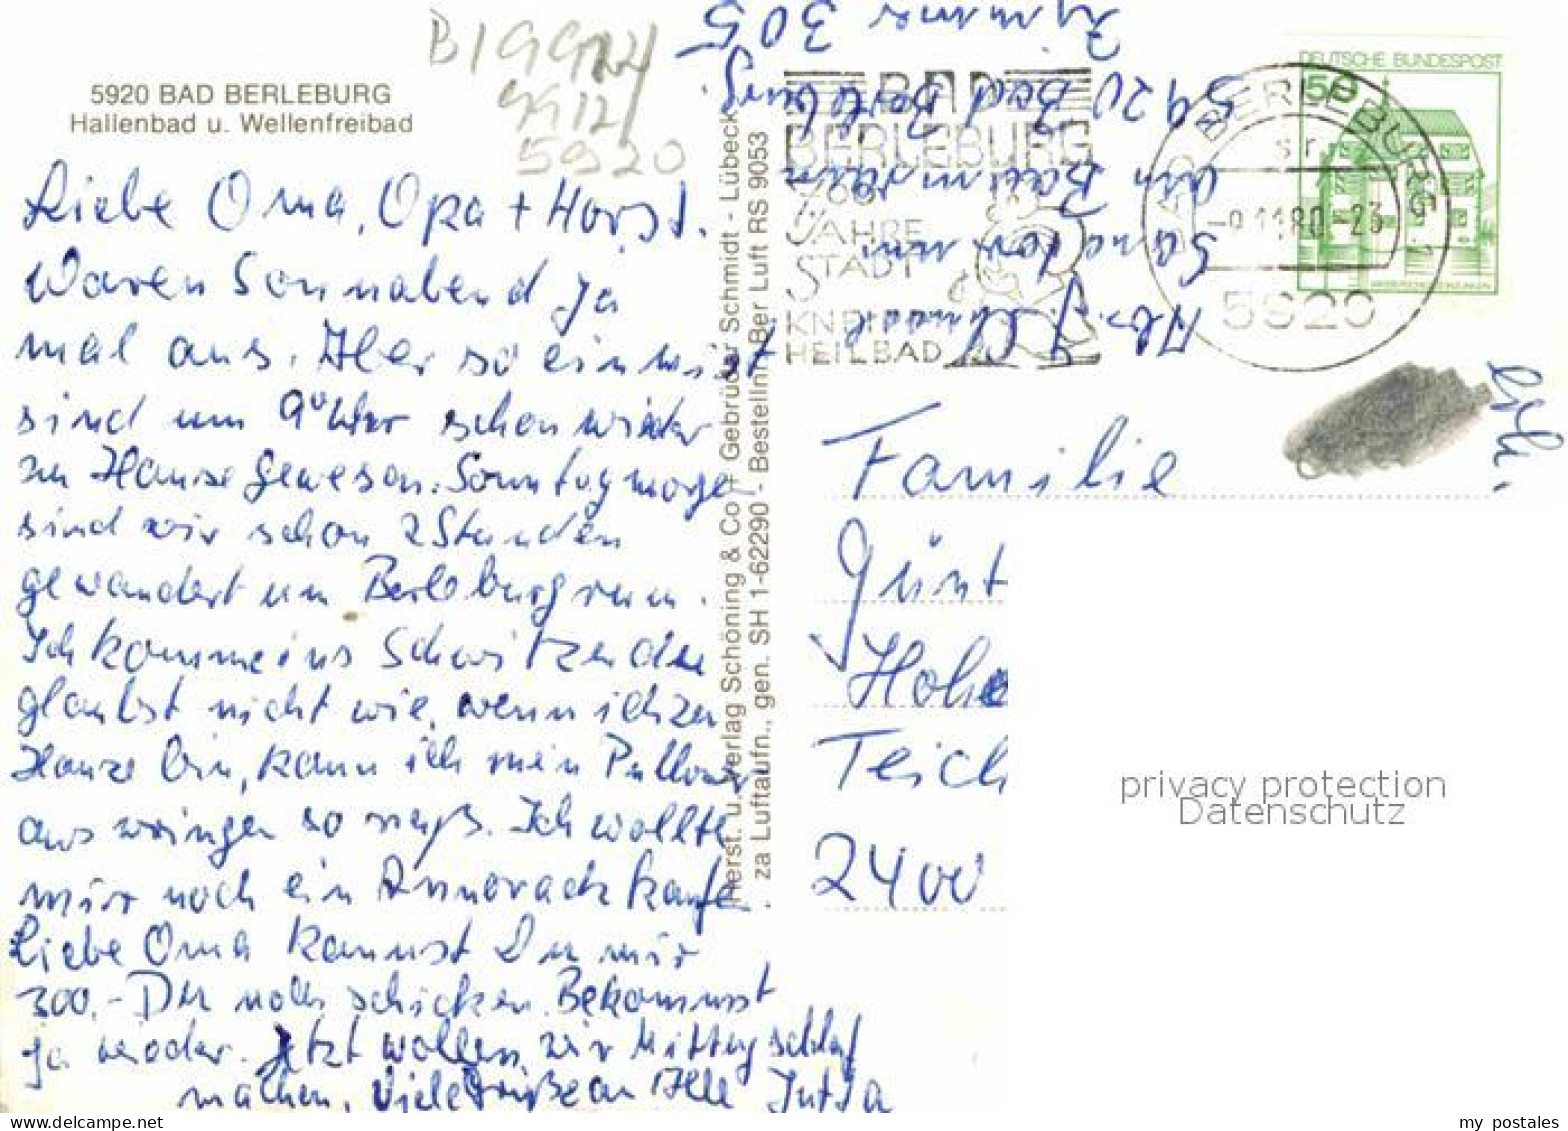 BIGGI
5920
5920 BAD BERLEBURG
Hallenbad u. Wellenfreibad
Liebe Oma, Opa + Horst.
Waren Sonnabend ja
mal aus. Aber so ein mist
sind um 9°° Uhr schon wieder
zu Hause gewesen. Sonntagmorgen
sind wir schon 2 Stunden
gewandert um Berleburg rum.
Ich komme ins Schwitzen du
glaubst nicht wie, wenn ich zu
Hause bin, kann ich mein Pullover
auswringen so naß. Ich wollte
mir noch ein Annorack kaufen.
Liebe Oma kannst Du mir
300,- DM noch schicken. Bekommst
ja wieder. Jetzt wollen wir Mittagschlaf
machen. Viele Grüße an Alle Jutta
Herst. u. Verlag Schöning & Co + Gebrüder Schmidt - Lübeck
za Luftaufn., gen. SH 1-62290 - Bestellnr. Ber Luft RS 9053
Abs. J.
Sanatorium
am
5920 Bad Berleburg
Zimmer 305
BAD
BERLEBURG
JAHRE
STADT
KNEIPP
HEILBAD
BAD BERLEBURG 1
sr
-9.11.80-23
5920
DEUTSCHE BUNDESPOST
50
Familie
Günt
Hohe
Teich
2400
privacy protection
Datenschutz
my postales